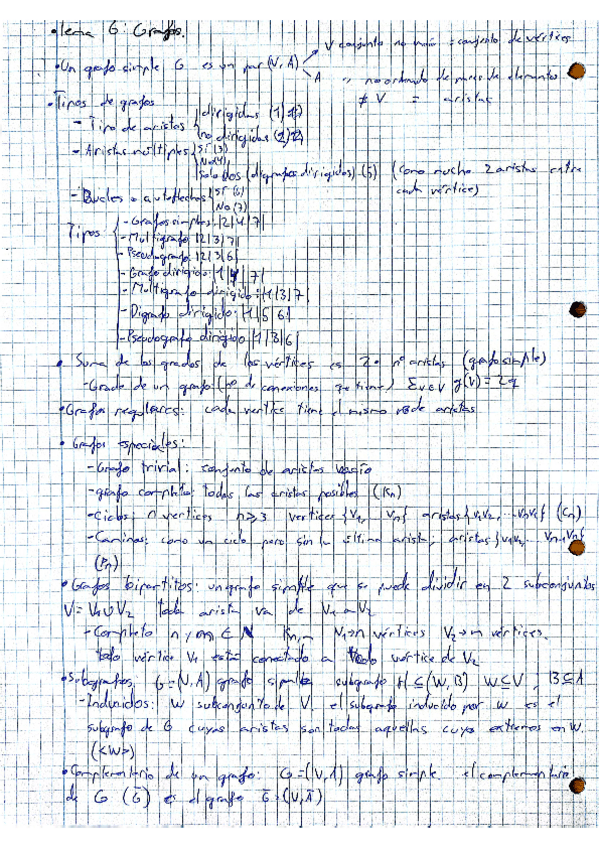 • Tema 6: Grafos.
V conjunto no vacío = conjunto de vértices
• Un grafo simple G es un par (V, A)
A " no ordenado de pares de elementos
≠ V = aristas
• Tipos de grafos
- Tipo de aristas { dirigidas (1)
no dirigidas (2)
- Aristas múltiples { Sí (3)
No (4)
Solo dos (digrafos dirigidos) (5) (Como mucho 2 aristas entre
cada vértice)
- Bucles o autoflechas { Sí (6)
No (7)
Tipos { - Grafo simple: |2|4|7|
- Multigrafo |2|3|7|
- Pseudografo |2|3|6|
- Grafo dirigido: |1|4|7|
- Multigrafo dirigido: |1|3|7|
- Digrafo dirigido: |1|5|6|
- Pseudografo dirigido |1|3|6|
• Suma de los grados de los vértices es 2 · nº aristas (grafo simple)
- Grado de un grafo (nº de conexiones que tiene) Σv∈V g(v) = 2q
• Grafos regulares: cada vértice tiene el mismo nº de aristas
• Grafos especiales:
- Grafo trivial: conjunto de aristas vacío
- grafo completo: todas las aristas posibles (Kn)
- Ciclos: n vértices n≥3 vértices {V1, ... Vn} aristas {V1V2, ... VnV1} (Cn)
- Caminos: como un ciclo pero sin la última arista, aristas {V1V2 ... Vn-1Vn}
(Pn)
• Grafos bipartitos: un grafo simple que se puede dividir en 2 subconjuntos
V = V1 ∪ V2 toda arista va de V1 a V2
- Completo n y m ∈ N Kn,m V1→n vértices V2→m vértices.
todo vértice V1 está conectado a todo vértice de V2
• Subgrafos, G = (V, A) grafo simple subgrafo H ⊆ (W, B) W ⊆ V, B ⊆ A
- Inducidos: W subconjunto de V. el subgrafo inducido por W es el
subgrafo de G cuyas aristas son todas aquellas cuyos extremos en W.
(<W>)
• Complementario de un grafo: G = (V, A) grafo simple el complementario
de G (G̅) es el grafo G̅ = (V, A̅)